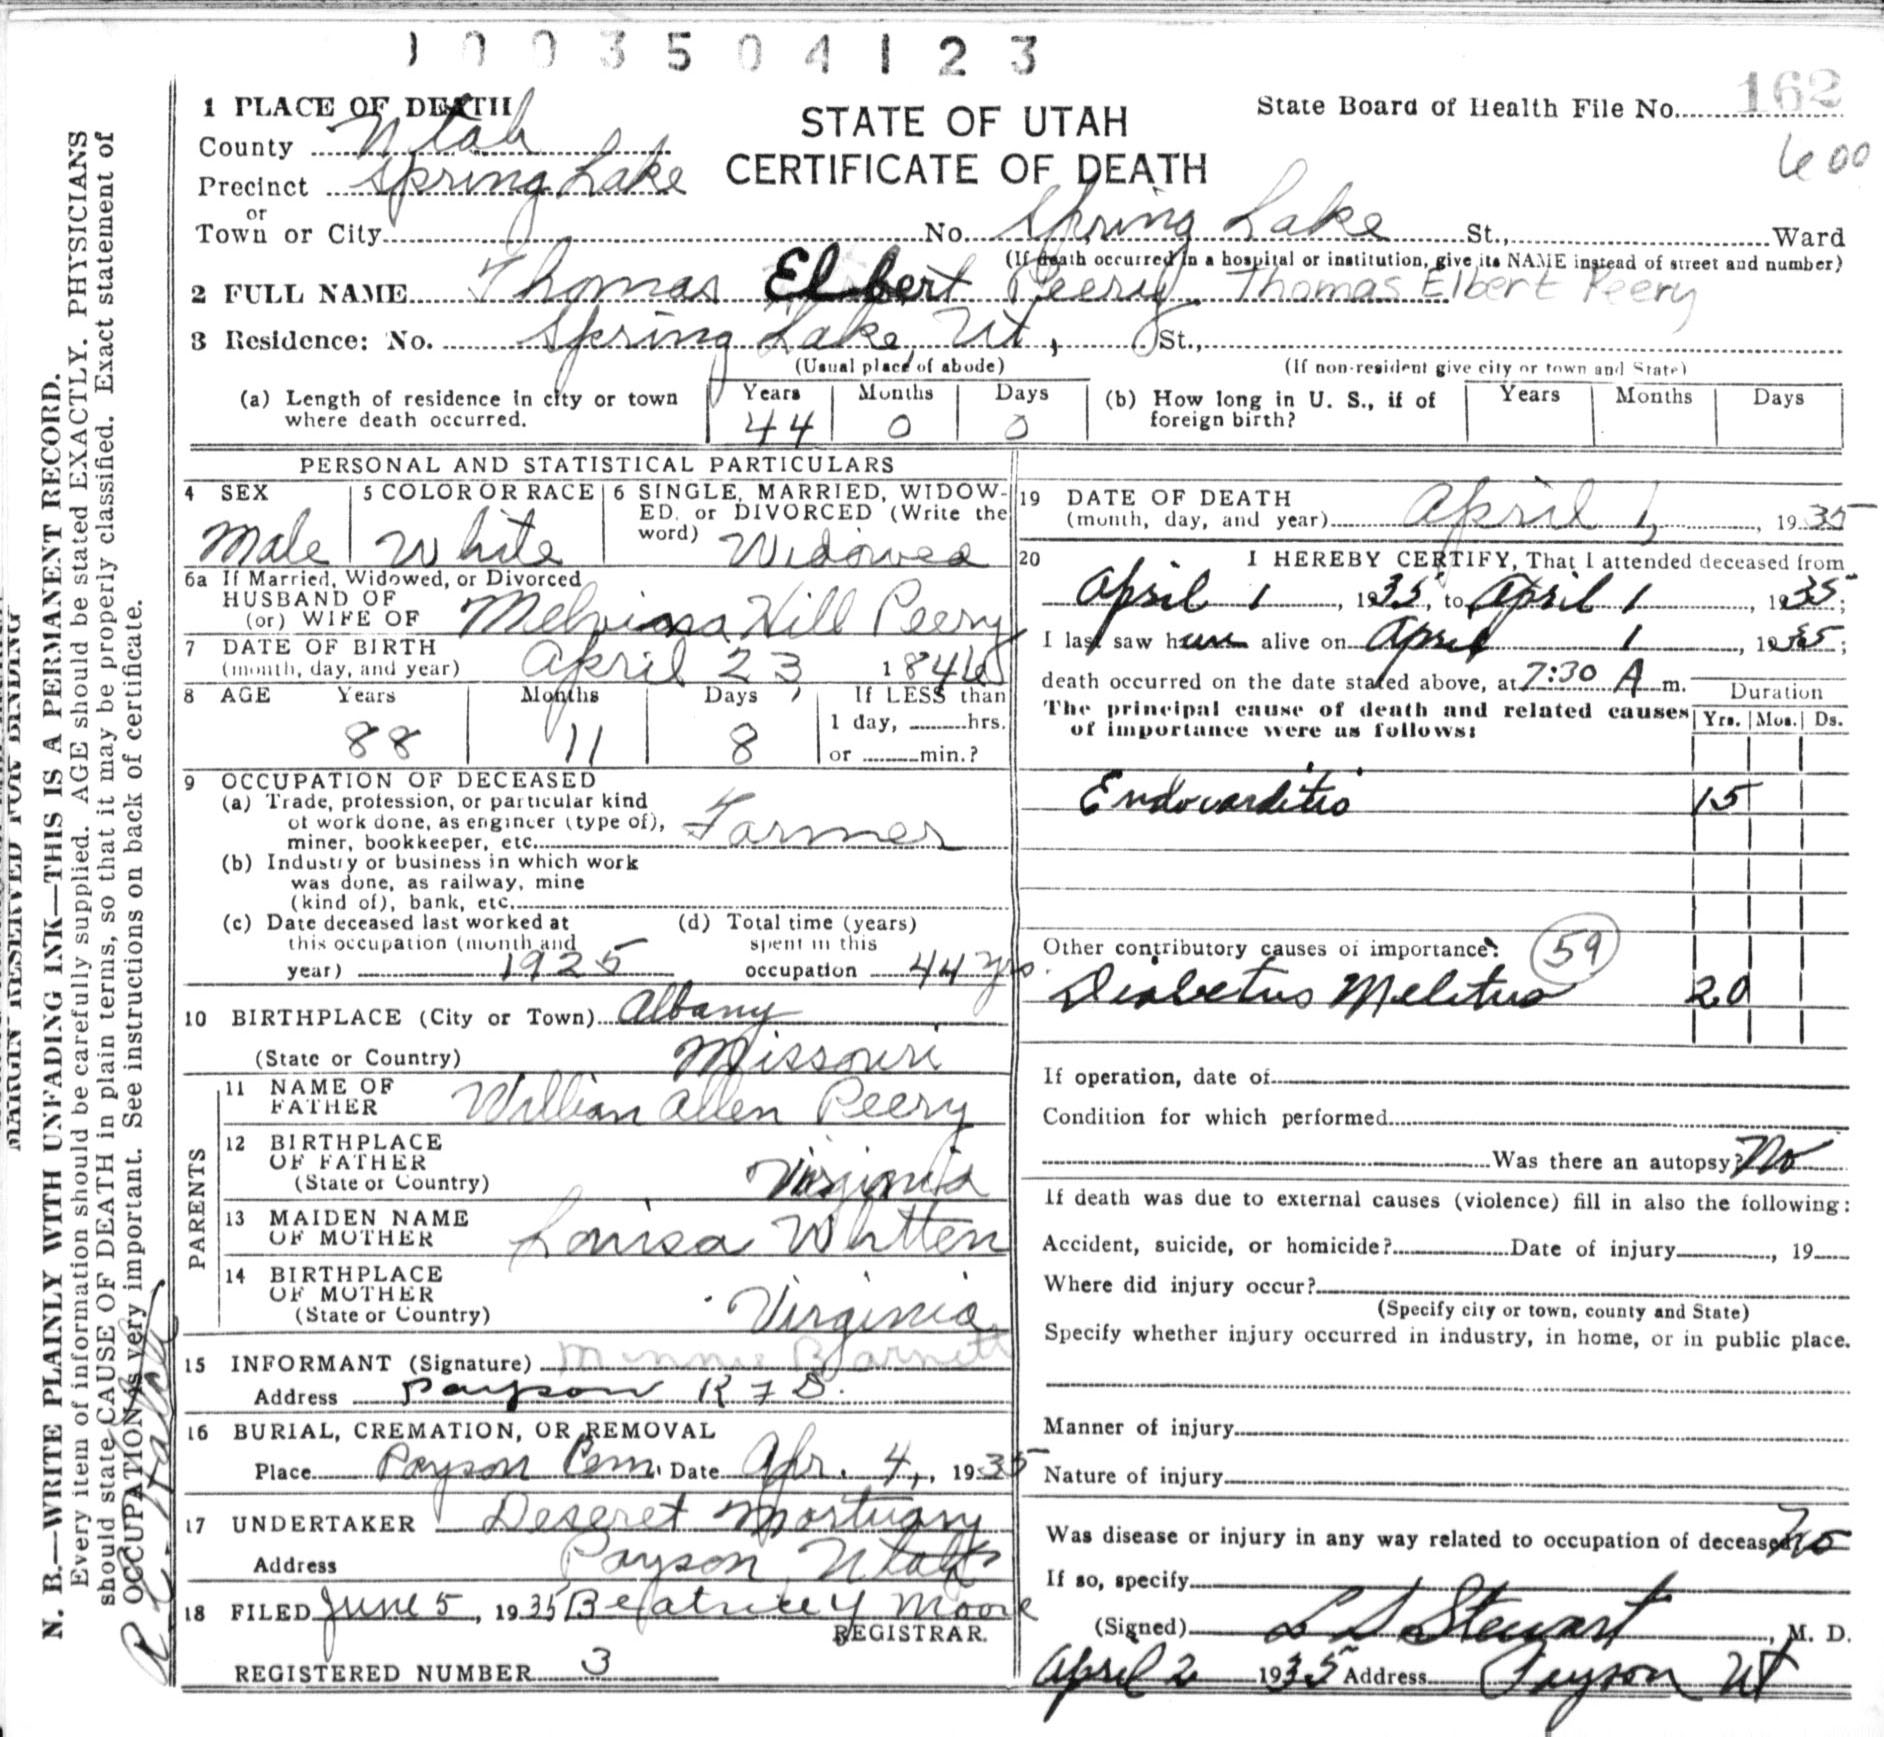 1 0 0 3 5 0 4 1 2 3
1 PLACE OF DEATH
STATE OF UTAH
CERTIFICATE OF DEATH
State Board of Health File No. 162
600
County Utah
Precinct Spring Lake
or
Town or City No. Spring Lake St., Ward
(If death occurred in a hospital or institution, give its NAME instead of street and number)
2 FULL NAME Thomas Elbert Peery Thomas Elbert Peery
3 Residence: No. Spring Lake, Ut, St.,
(Usual place of abode) (If non-resident give city or town and State)
(a) Length of residence in city or town where death occurred. Years 44 Months 0 Days 0
(b) How long in U. S., if of foreign birth? Years Months Days
PERSONAL AND STATISTICAL PARTICULARS
4 SEX Male
5 COLOR OR RACE White
6 SINGLE, MARRIED, WIDOWED, or DIVORCED (Write the word) Widowed
6a If Married, Widowed, or Divorced
HUSBAND OF
(or) WIFE OF Hill Peery
7 DATE OF BIRTH
(month, day, and year) April 23, 1846
8 AGE Years 88 Months 11 Days 8
If LESS than
1 day, hrs.
or min.?
9 OCCUPATION OF DECEASED
(a) Trade, profession, or particular kind
of work done, as engineer (type of),
miner, bookkeeper, etc. Farmer
(b) Industry or business in which work
was done, as railway, mine
(kind of), bank, etc.
(c) Date deceased last worked at
this occupation (month and
year) 1925
(d) Total time (years)
spent in this
occupation 44 yrs.
10 BIRTHPLACE (City or Town) Albany
(State or Country) Missouri
PARENTS
11 NAME OF
FATHER William Allen Peery
12 BIRTHPLACE
OF FATHER
(State or Country) Virginia
13 MAIDEN NAME
OF MOTHER Louisa Whitten
14 BIRTHPLACE
OF MOTHER
(State or Country) Virginia
15 INFORMANT (Signature) Minnie Barnett
Address Payson R F D.
16 BURIAL, CREMATION, OR REMOVAL
Place Payson Cem. Date Apr. 4, 1935
17 UNDERTAKER Deseret Mortuary
Address Payson, Utah
18 FILED June 5, 1935 Beatrice Y Moore
REGISTRAR.
REGISTERED NUMBER 3
19 DATE OF DEATH
(month, day, and year) April 1, 1935
20 I HEREBY CERTIFY, That I attended deceased from
April 1, 1935, to April 1, 1935;
I last saw him alive on April 1, 1935;
death occurred on the date stated above, at 7:30 A m.
The principal cause of death and related causes
of importance were as follows:
Duration
Yrs. Mos. Ds.
Endocarditis 15
Other contributory causes of importance: 59
Diabetus Melitus 20
If operation, date of
Condition for which performed
Was there an autopsy? No
If death was due to external causes (violence) fill in also the following:
Accident, suicide, or homicide? Date of injury , 19
Where did injury occur?
(Specify city or town, county and State)
Specify whether injury occurred in industry, in home, or in public place.
Manner of injury
Nature of injury
Was disease or injury in any way related to occupation of deceased No
If so, specify
(Signed) L D Stewart, M. D.
April 2 1935 Address Payson Ut
MARGIN RESERVED FOR BINDING
N. B.—WRITE PLAINLY WITH UNFADING INK—THIS IS A PERMANENT RECORD.
Every item of information should be carefully supplied. AGE should be stated EXACTLY. PHYSICIANS
should state CAUSE OF DEATH in plain terms, so that it may be properly classified. Exact statement of
OCCUPATION is very important. See instructions on back of certificate.